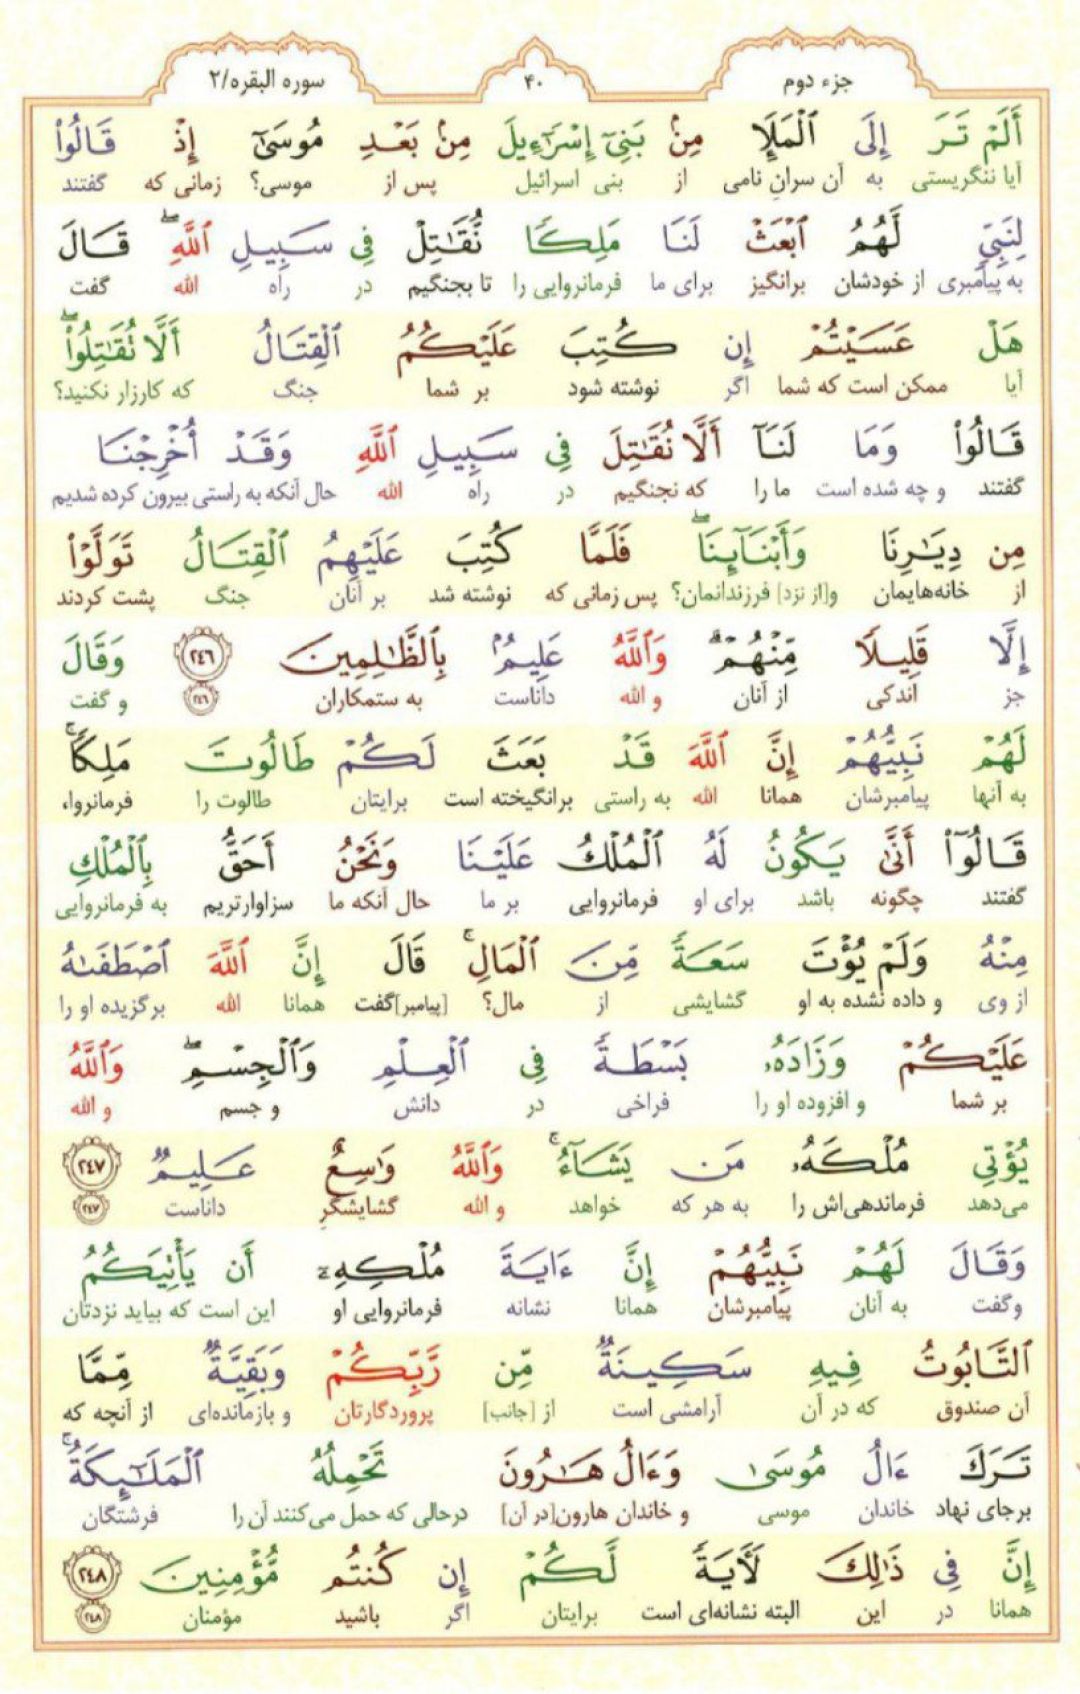 جزء دوم
۴۰
سوره البقره/۲
أَلَمْ تَرَ إِلَى ٱلْمَلَإِ مِنۢ بَنِىٓ إِسْرَٰٓءِيلَ مِنۢ بَعْدِ مُوسَىٰٓ إِذْ قَالُوا۟
آیا ننگریستی به آن سرانِ نامی از بنی اسرائیل پس از موسی؟ زمانی که گفتند
لِنَبِىٍّ لَّهُمُ ٱبْعَثْ لَنَا مَلِكًا نُّقَٰتِلْ فِى سَبِيلِ ٱللَّهِ ۖ قَالَ
به پیامبری از خودشان برانگیز برای ما فرمانروایی را تا بجنگیم در راه الله گفت
هَلْ عَسَيْتُمْ إِن كُتِبَ عَلَيْكُمُ ٱلْقِتَالُ أَلَّا تُقَٰتِلُوا۟ ۖ
آیا ممکن است که شما اگر نوشته شود بر شما جنگ که کارزار نکنید؟
قَالُوا۟ وَمَا لَنَآ أَلَّا نُقَٰتِلَ فِى سَبِيلِ ٱللَّهِ وَقَدْ أُخْرِجْنَا
گفتند و چه شده است ما را که نجنگیم در راه الله حال آنکه به راستی بیرون کرده شدیم
مِن دِيَٰرِنَا وَأَبْنَآئِنَا ۖ فَلَمَّا كُتِبَ عَلَيْهِمُ ٱلْقِتَالُ تَوَلَّوْا۟
از خانه‌هایمان و[از نزد] فرزندانمان؟ پس زمانی که نوشته شد بر آنان جنگ پشت کردند
إِلَّا قَلِيلًا مِّنْهُمْ ۗ وَٱللَّهُ عَلِيمٌۢ بِٱلظَّٰلِمِينَ ٢٤٦ وَقَالَ
جز اندکی از آنان و الله داناست به ستمکاران ۲۴۶ و گفت
لَهُمْ نَبِيُّهُمْ إِنَّ ٱللَّهَ قَدْ بَعَثَ لَكُمْ طَالُوتَ مَلِكًا ۚ
به آنها پیامبرشان همانا الله به راستی برانگیخته است برایتان طالوت را فرمانروا،
قَالُوٓا۟ أَنَّىٰ يَكُونُ لَهُ ٱلْمُلْكُ عَلَيْنَا وَنَحْنُ أَحَقُّ بِٱلْمُلْكِ
گفتند چگونه باشد برای او فرمانروایی بر ما حال آنکه ما سزاوارتریم به فرمانروایی
مِنْهُ وَلَمْ يُؤْتَ سَعَةً مِّنَ ٱلْمَالِ ۚ قَالَ إِنَّ ٱللَّهَ ٱصْطَفَىٰهُ
از وی و داده نشده به او گشایشی از مال؟ [پیامبر]گفت همانا الله برگزیده او را
عَلَيْكُمْ وَزَادَهُۥ بَسْطَةً فِى ٱلْعِلْمِ وَٱلْجِسْمِ ۖ وَٱللَّهُ
بر شما و افزوده او را فراخی در دانش و جسم و الله
يُؤْتِى مُلْكَهُۥ مَن يَشَآءُ ۚ وَٱللَّهُ وَٰسِعٌ عَلِيمٌ ٢٤٧
می‌دهد فرماندهی‌اش را به هر که خواهد و الله گشایشگرِ داناست ۲۴۷
وَقَالَ لَهُمْ نَبِيُّهُمْ إِنَّ ءَايَةَ مُلْكِهِۦٓ أَن يَأْتِيَكُمُ
وگفت به آنان پیامبرشان همانا نشانه فرمانروایی او این است که بیاید نزدتان
ٱلتَّابُوتُ فِيهِ سَكِينَةٌ مِّن رَّبِّكُمْ وَبَقِيَّةٌ مِّمَّا
آن صندوق که در آن آرامشی است از [جانب] پروردگارتان و بازمانده‌ای از آنچه که
تَرَكَ ءَالُ مُوسَىٰ وَءَالُ هَٰرُونَ تَحْمِلُهُ ٱلْمَلَٰٓئِكَةُ ۚ
برجای نهاد خاندان موسی و خاندان هارون[در آن] درحالی که حمل می‌کنند آن را فرشتگان
إِنَّ فِى ذَٰلِكَ لَءَايَةً لَّكُمْ إِن كُنتُم مُّؤْمِنِينَ ٢٤٨
همانا در این البته نشانه‌ای است برایتان اگر باشید مؤمنان ۲۴۸